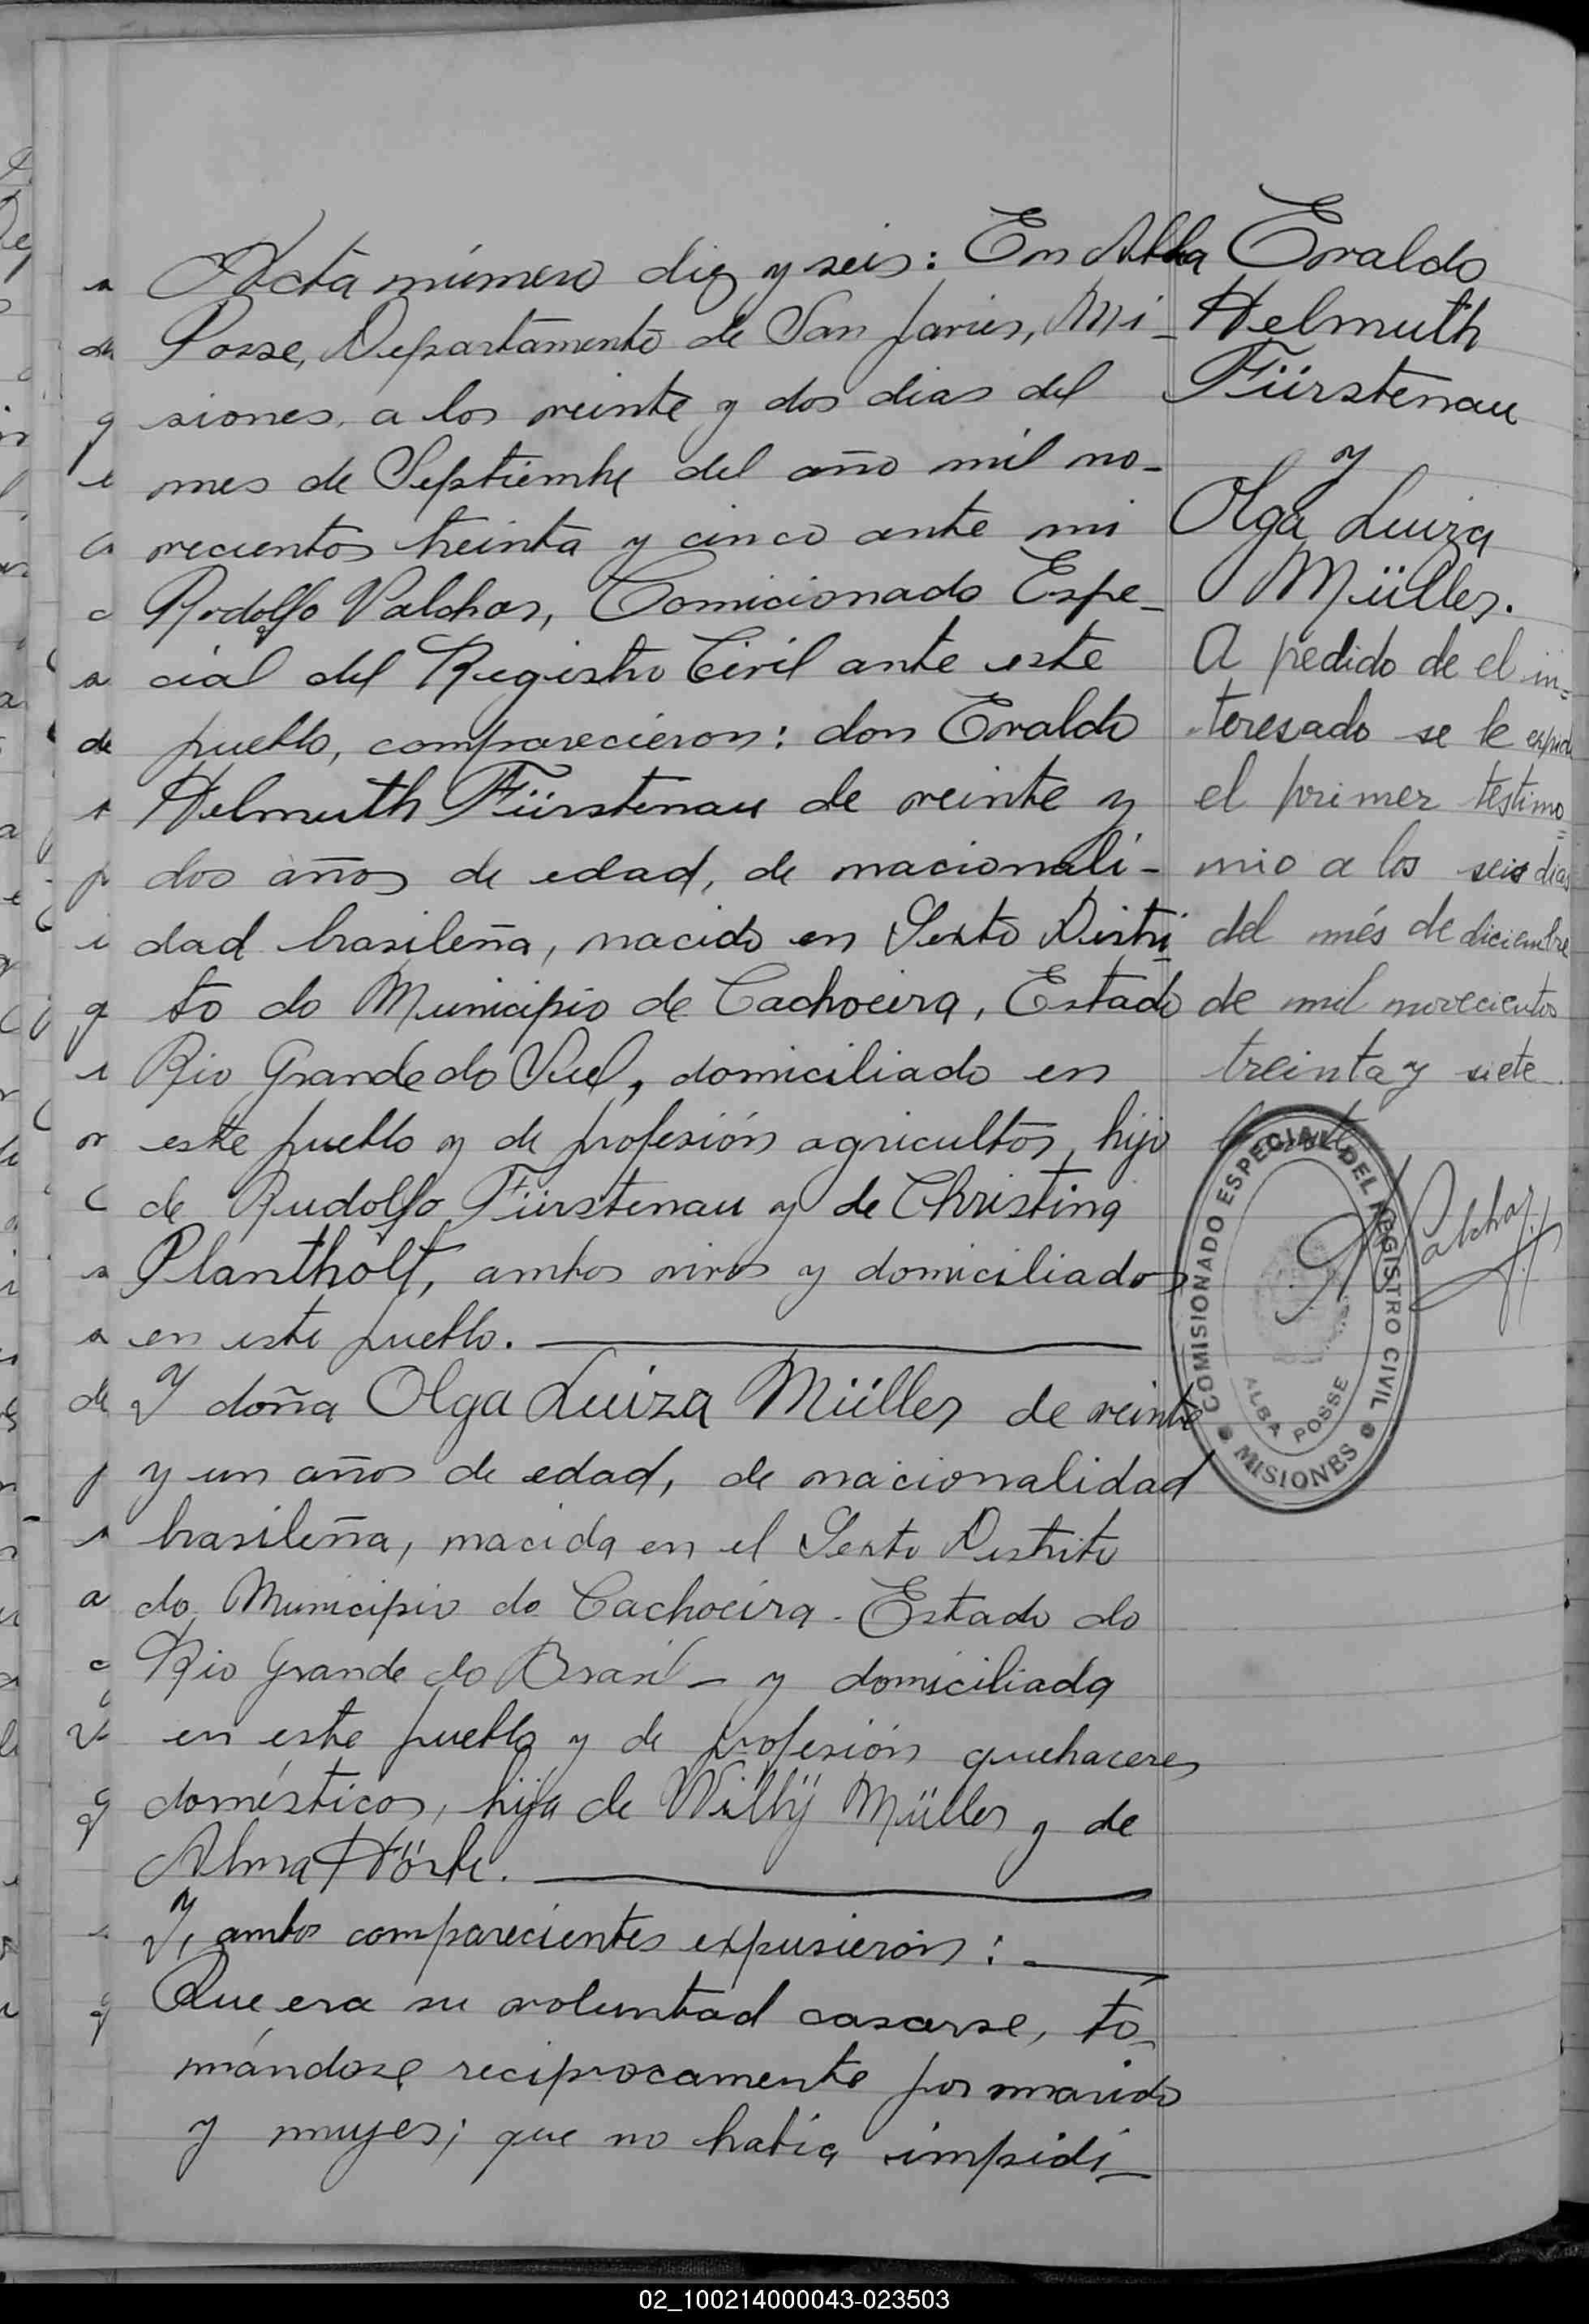 Acta número diez y seis: En Alba
Posse, Departamento de San Javier, Mi-
siones, a los veinte y dos dias del
mes de Septiembre del año mil no-
vecientos treinta y cinco ante mi
Rodolfo Valchar, Comicionado Espe-
cial del Registro Civil ante este
pueblo, comparecieron: don Evaldo
Helmuth Fürstenau de veinte y
dos años de edad, de nacionali-
dad brasileña, nacido en Sexto Distri
to do Municipio de Cachoeira, Estado
Rio Grande do Sul, domiciliado en
este pueblo y de profesión agricultor, hijo
de Rudolfo Fürstenau y de Christina
Plantholt, ambos vivos y domiciliados
en este pueblo.
Y doña Olga Luiza Müller de veinte
y un años de edad, de nacionalidad
brasileña, nacida en el Sexto Distrito
do Municipio do Cachoeira. Estado do
Rio Grande do Brasil - y domiciliada
en este pueblo y de profesión quehaceres
domésticos, hija de Willÿ Müller y de
Alma
Y, ambos comparecientes expusieron:
Que era su voluntad casarse, to-
mándose reciprocamente por marido
y mujer; que no habia impidi-
Evaldo
Helmuth
Fürstenau
y
Olga Luiza
Müller.
A pedido de el in=
teresado se le expide
el primer testimo=
nio a los seis dias
del més de diciembre
de mil novecientos
treinta y siete.
COMISIONADO ESPECIAL DEL REGISTRO CIVIL
ALBA POSSE
MISIONES
R Valchar
02_100214000043-023503